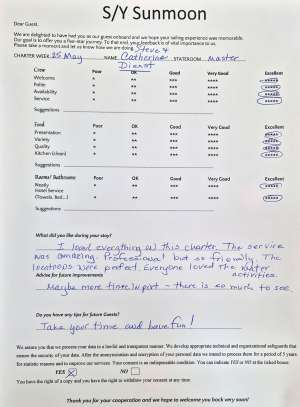 S/Y Sunmoon
Dear Guest,
We are delighted to have had you as our guest onboard and we hope your sailing experience was memorable.
Our goal is to offer you a five-star journey. To that end, your feedback is of vital importance to us.
Please take a moment and let us know how we are doing. Steve &
CHARTER WEEK 25 May NAME Catherine STATEROOM Master
Crew Poor OK Good Very Good Excellent
Welcome * ** *** **** *****
Polite * ** *** **** *****
Availability * ** *** **** *****
Service * ** *** **** *****
Suggestions
Food Poor OK Good Very Good Excellent
Presentation * ** *** **** *****
Variety * ** *** **** *****
Quality * ** *** **** *****
Kitchen (clean) * ** *** **** *****
Suggestions
Rooms/ Bathrooms Poor OK Good Very Good Excellent
Neatly * ** *** **** *****
Hotel Service
(Towels, Bed...) * ** *** **** *****
Suggestions
What did you like during your stay?
I loved everything on this charter. The service
was amazing. Professional but so friendly. The
locations were perfect. Everyone loved the water
activities.
Advise for future improvements
Maybe more time in port - there is so much to see
Do you have any tips for future Guests?
Take your time and have fun!
We assure you that we process your data in a lawful and transparent manner. We develop appropriate technical and organizational safeguards that
ensure the security of your data. After the anonymization and encryption of your personal data we intend to process them for a period of 5 years
for statistic reasons and to improve our services. Your consent is an indispensable condition. You can indicate YES or NO at the linked boxes:
YES NO
You have the right of a copy and you have the right to withdraw your consent at any time.
Thank you for your cooperation and we hope to welcome you onboard again soon!